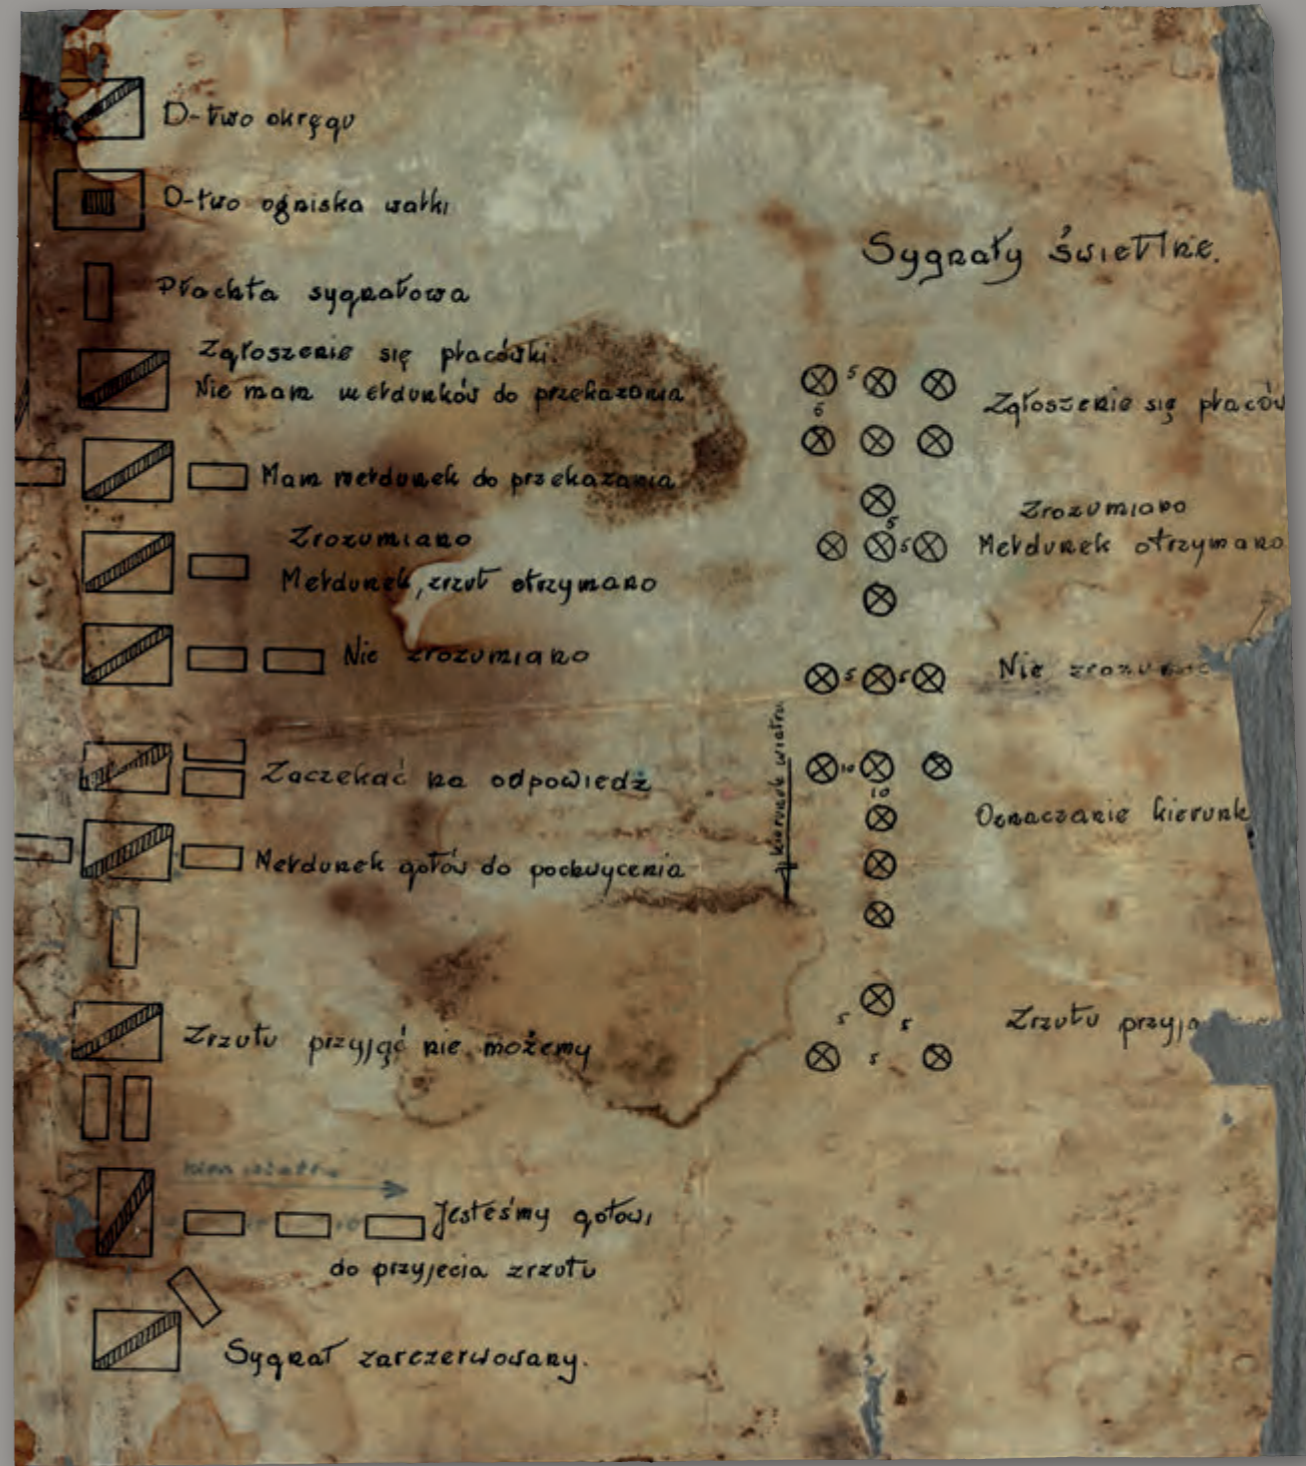 D-two okręgu
D-two ogniska walki
Płachta sygnałowa
Zgłoszenie się placówki.
Nie mam meldunków do przekazania
Mam meldunek do przekazania
Zrozumiano
Meldunek, zrzut otrzymano
Nie zrozumiano
Zaczekać na odpowiedź
Meldunek gotów do pochwycenia
Zrzutu przyjąć nie możemy
Jesteśmy gotowi
do przyjęcia zrzutu
Sygnał zarezerwowany.
Sygnały świetlne.
5
6
Zgłoszenie się placów
5
5
Zrozumiano
Meldunek otrzymano
5 5
Nie
kierunek wiatru
10
10
Oznaczanie kierunk
5 5
5
Zrzutu